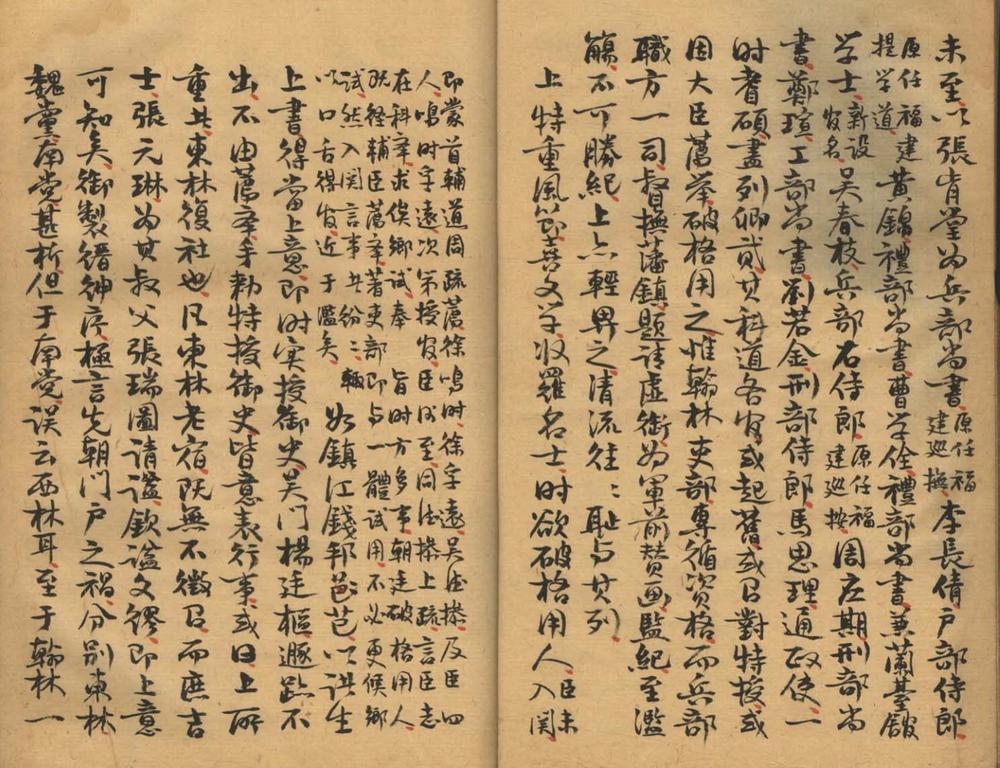 未至以張肯堂為兵部尚書原任福建巡撫李長倩戶部侍郎
原任福建提学道黃錦禮部尚書曹学佺禮部尚書兼蘭基館
学士新設官名吴春枝兵部右侍郎原任福建巡按周应期刑部尚
書鄭瑄工部尚書劉若金刑部侍郎馬思理通政使一
时耆碩盡列卿貳其科道各官或起舊或召對特授或
因大臣薦举破格用之惟翰林吏部專循资格而兵部
職方一司督撫藩鎮題请虚銜为軍前赞画監紀至濫
觴不可勝紀上亦輕畀之清流往〻耻与其列
上特重風節喜文学收羅名士时欲破格用人臣未入閩
即蒙首輔道周疏薦徐鳴时徐孚遠吴及臣四
人鳴时孚遠次第授官臣後至同上疏言臣志
在科举求俟鄉试奉旨时方多事朝廷破格用人
既経輔臣薦举著吏部即与一體试用不必更候鄉
试然入閩言事共纷〻輒
以口舌得官近于濫矣如鎮江錢邦芑以諸生
上書得當上意即时实授御史吴门楊廷樞遯跡不
出不由薦举手勅特授御史皆意表行事或曰上所
重共東林復社也凡東林老宿既無不徵召而匪吉
士張元琳为其叔父張瑞圖请謚欽謚文繆即上意
可知矣御製缙绅序極言先朝门户之祸分别東林
魏黨南党甚析但于南党误云西林耳至于翰林一